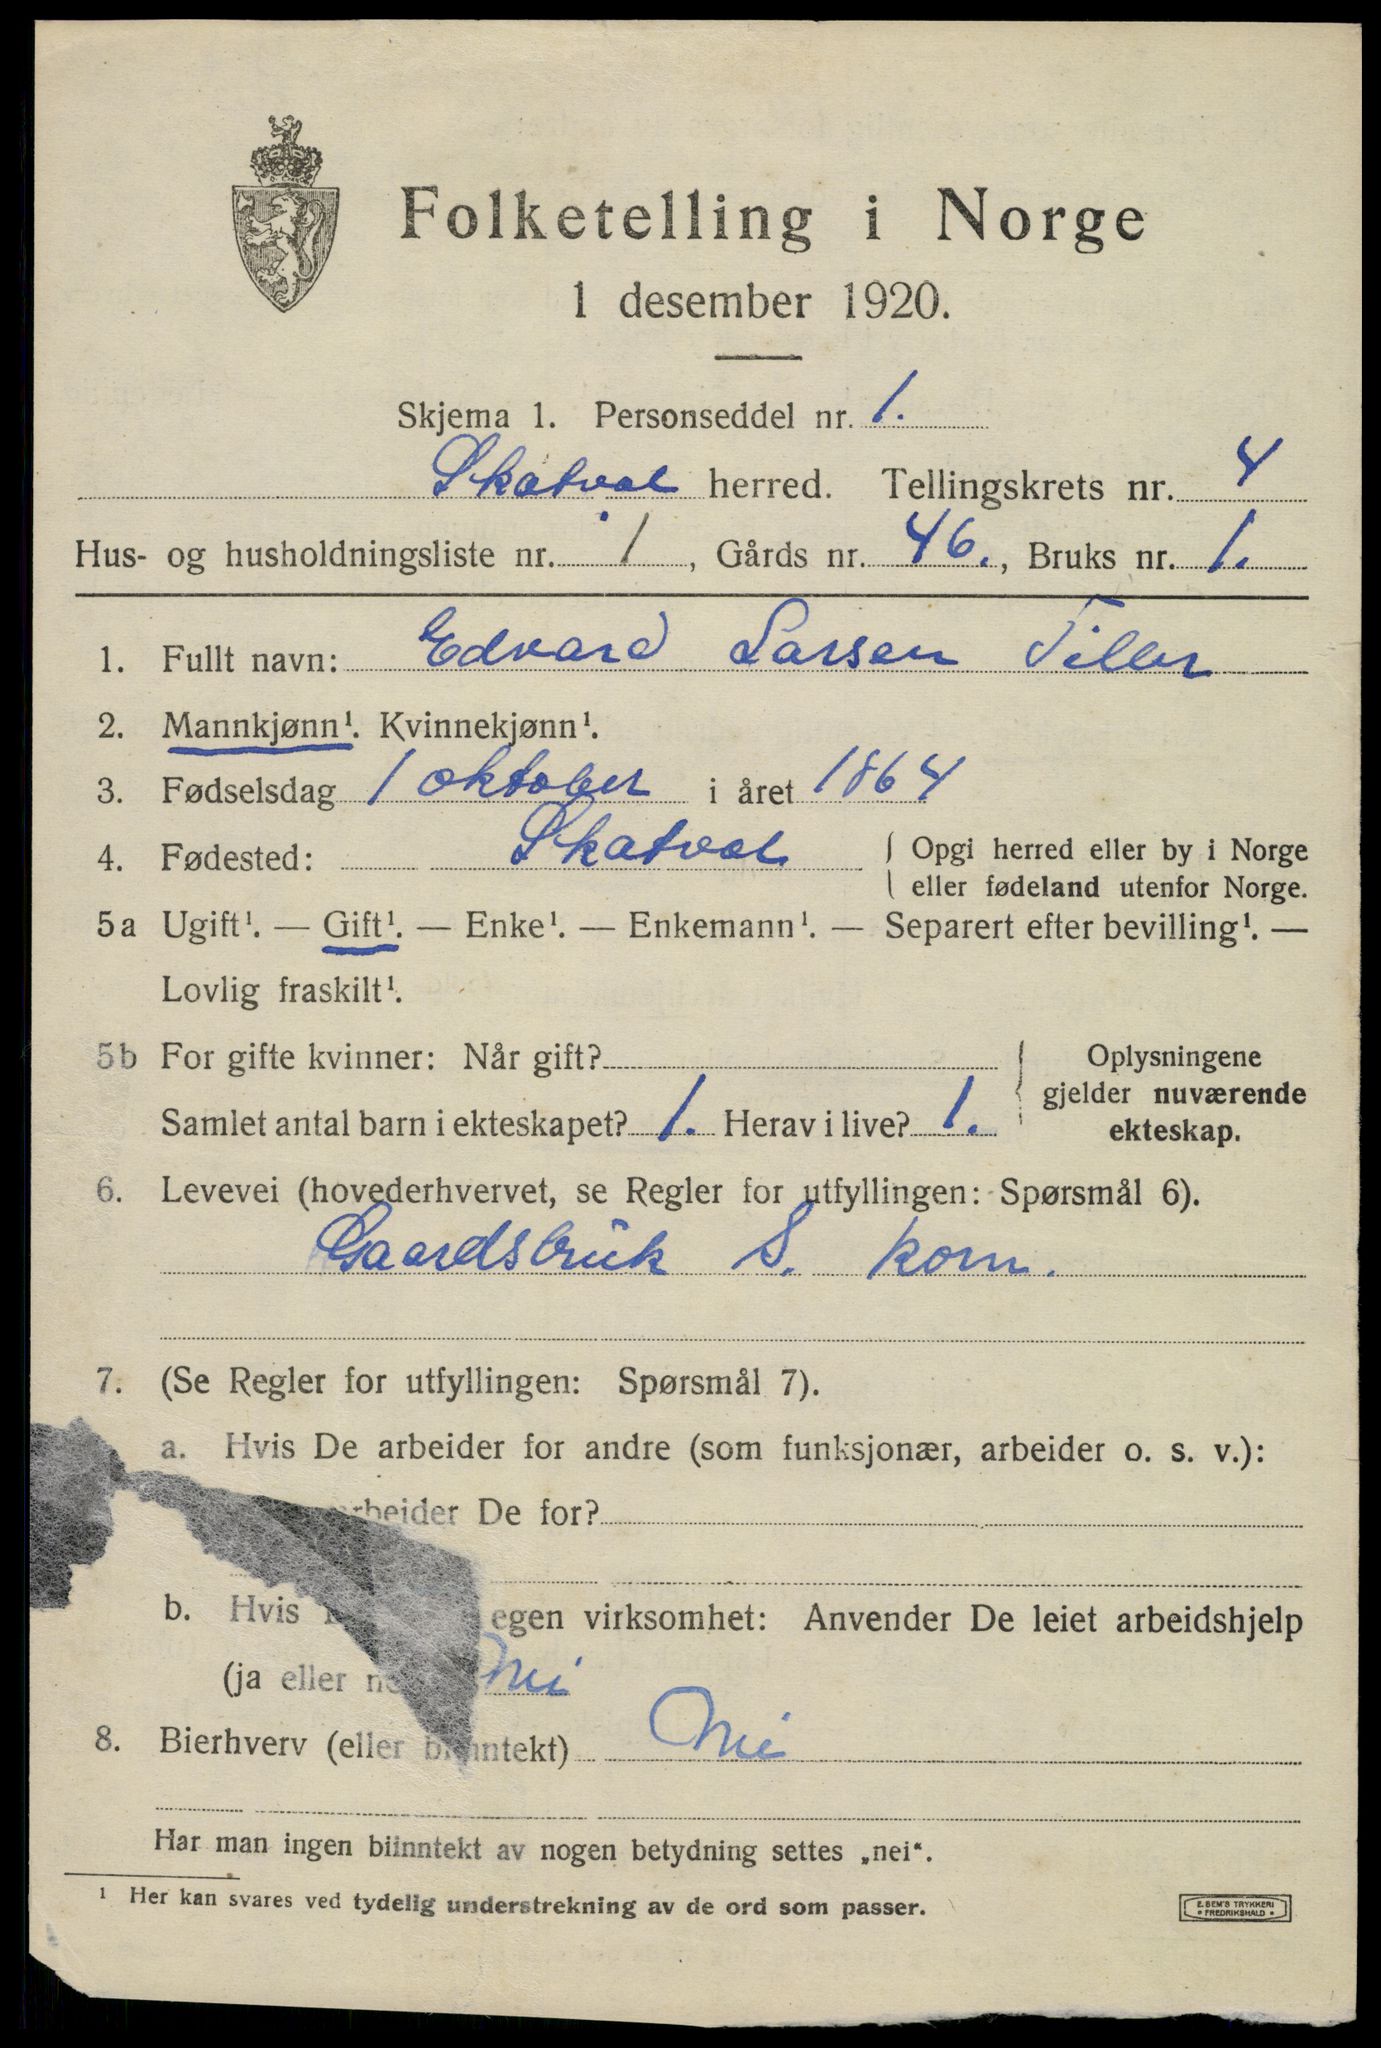 Folketelling i Norge
1 desember 1920.
Skjema 1. Personseddel nr. 1.
Skatval herred. Tellingskrets nr. 4
Hus- og husholdningsliste nr. 1, Gårds nr. 46., Bruks nr. 1.
1. Fullt navn: Edvard Larsen Tiller
2. Mannkjønn¹. Kvinnekjønn¹.
3. Fødselsdag 1 oktober i året 1864
4. Fødested: Skatval { Opgi herred eller by i Norge
eller fødeland utenfor Norge.
5a Ugift¹. — Gift¹. — Enke¹. — Enkemann¹. — Separert efter bevilling¹. —
Lovlig fraskilt¹.
5b For gifte kvinner: Når gift?
Samlet antal barn i ekteskapet? 1. Herav i live? 1.
Oplysningene
gjelder nuværende
ekteskap.
6. Levevei (hovederhvervet, se Regler for utfyllingen: Spørsmål 6).
Gaardsbruk S. korn.
7. (Se Regler for utfyllingen: Spørsmål 7).
a. Hvis De arbeider for andre (som funksjonær, arbeider o. s. v.):
arbeider De for?
b. Hvis egen virksomhet: Anvender De leiet arbeidshjelp
(ja eller Nei
8. Bierhverv (eller biinntekt) Nei
Har man ingen biinntekt av nogen betydning settes „nei“.
¹ Her kan svares ved tydelig understrekning av de ord som passer.
E. SEM'S TRYKKERI
* FREDRIKSHALD *